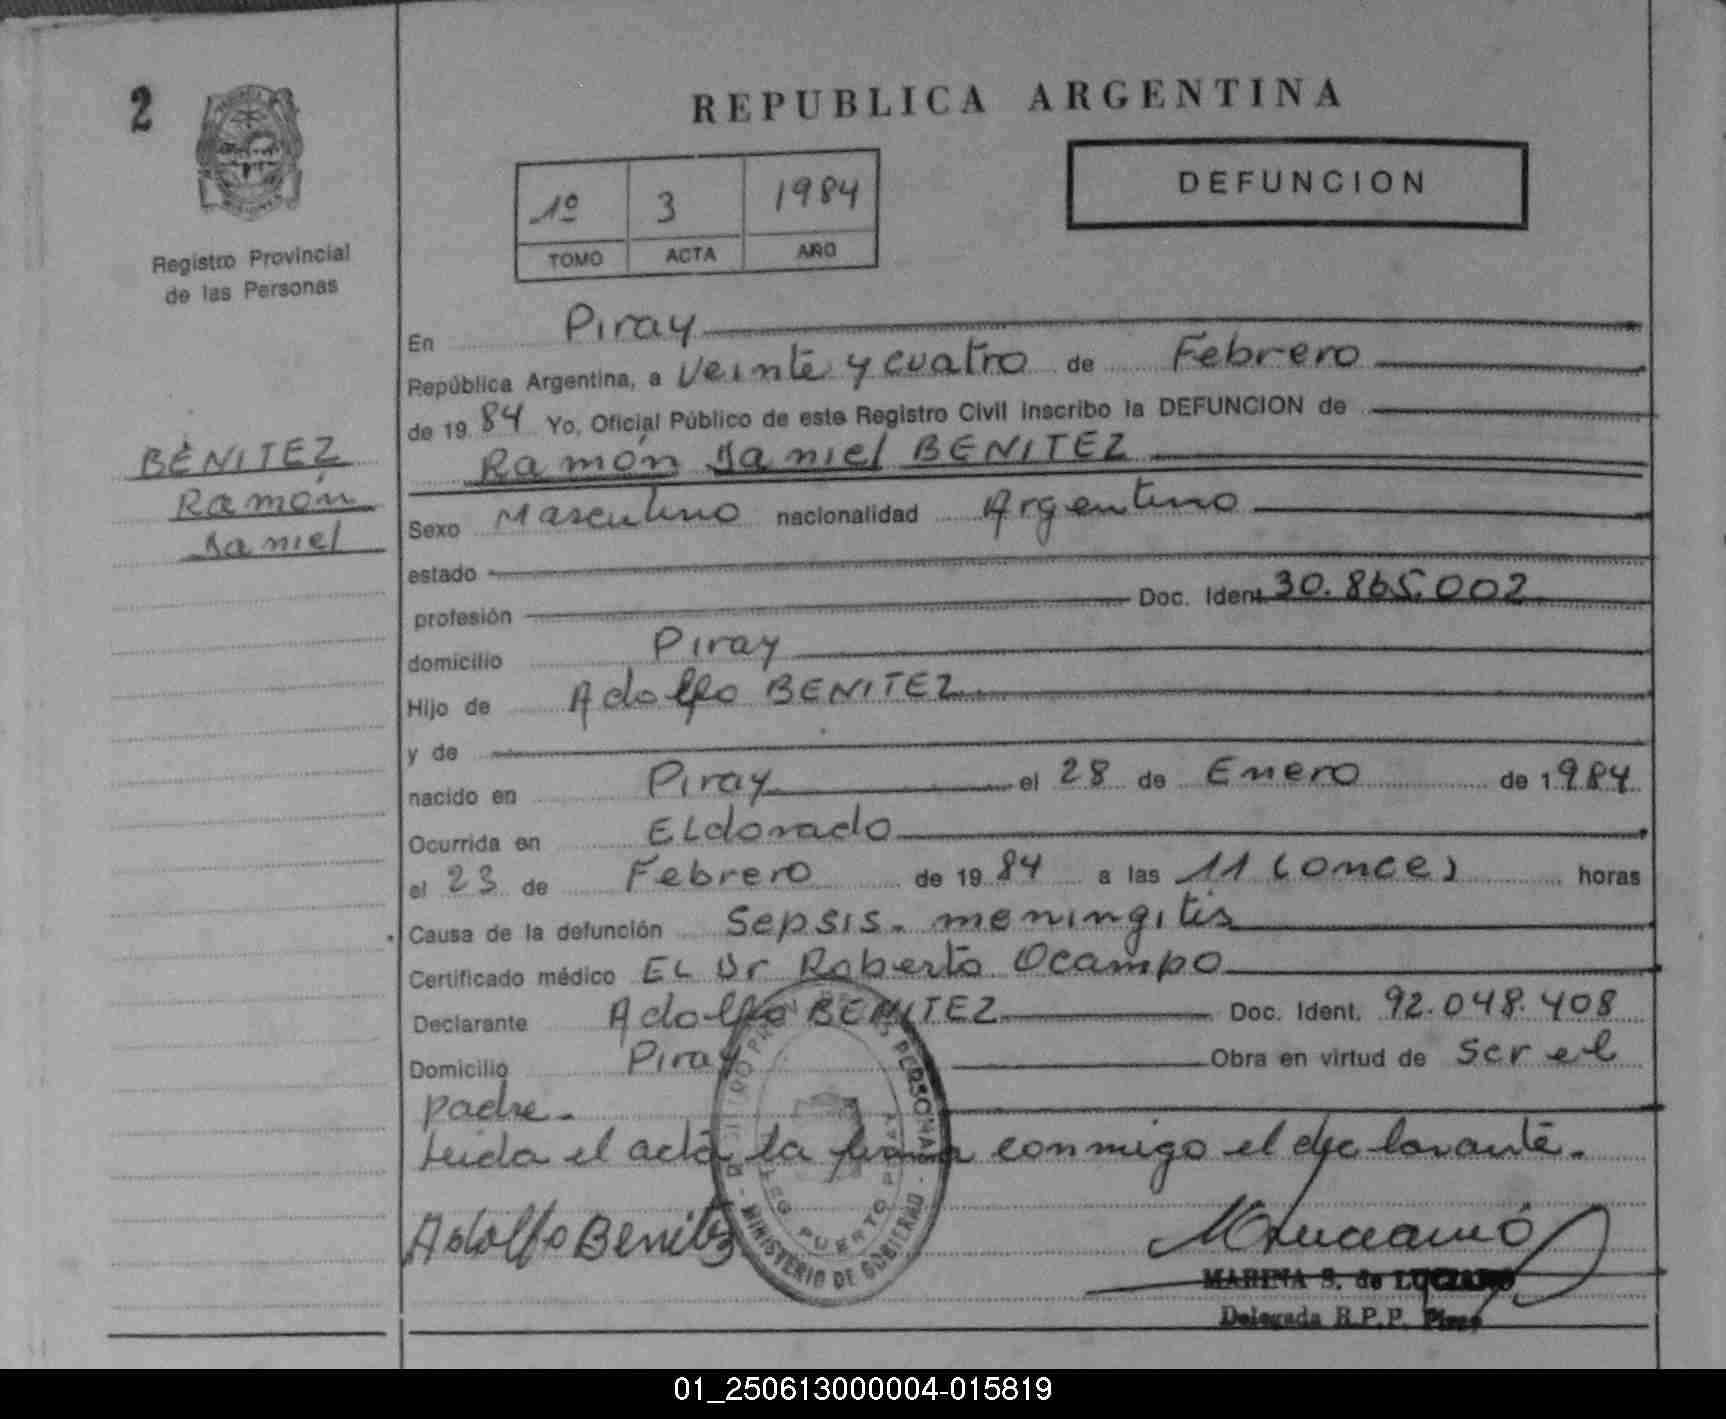 2
REPUBLICA ARGENTINA
DEFUNCION
1º 3 1984
TOMO ACTA AÑO
Registro Provincial
de las Personas
BENITEZ
Ramón
Daniel
En Piray
República Argentina, a Veinte y cuatro de Febrero
de 1984 Yo, Oficial Público de este Registro Civil inscribo la DEFUNCION de
Ramón Daniel BENITEZ
Sexo Masculino nacionalidad Argentino
estado
profesión Doc. Ident 30.865.002
domicilio Piray
Hijo de Adolfo BENITEZ
y de
nacido en Piray el 28 de Enero de 1984
Ocurrida en ELdorado
el 23 de Febrero de 1984 a las 11 (once) horas
Causa de la defunción Sepsis. meningitis
Certificado médico EL Dr Roberto Ocampo
Declarante Adolfo BENITEZ Doc. Ident. 92.048.408
Domicilio Piray Obra en virtud de ser el
padre.
Leida el acta la firma conmigo el declarante.
Adolfo Benitez
PERSONAS
PUERTO
MINISTERIO DE GOBIERNO
MARINA S. de LUCIANO
Delegada R.P.P. Piray
01_250613000004-015819